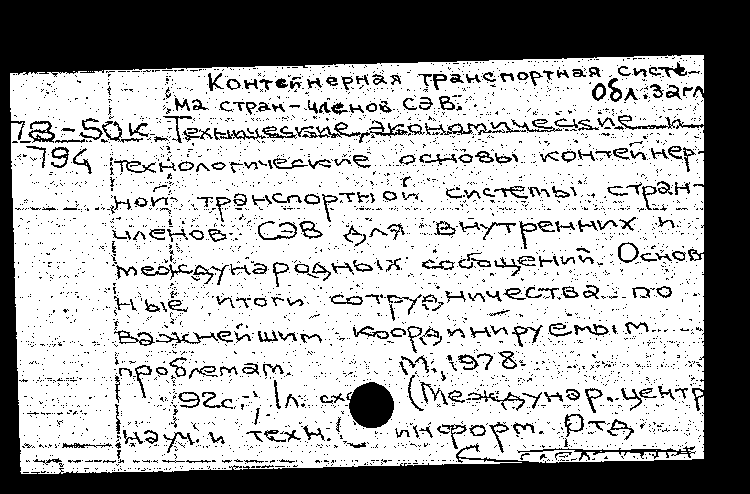 Контейнерная транспортная систе-
ма стран-членов СЭВ. Обл. загл
78-50к Технические, экономические и
794 технологические основы контейнер-
ной транспортной системы стран-
членов СЭВ для внутренних и
международных сообщений. Основ
ные итоги сотрудничества по
важнейшим координируемым
проблемам. М., 1978.
92с.; 1л. схе (Междунар. центр
науч. и техн. информ. Отд